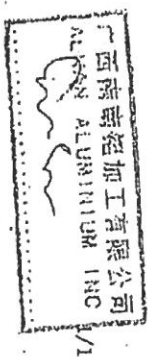 广西南南铝加工有限公司
ALNAN ALUMINIUM INC
1/1